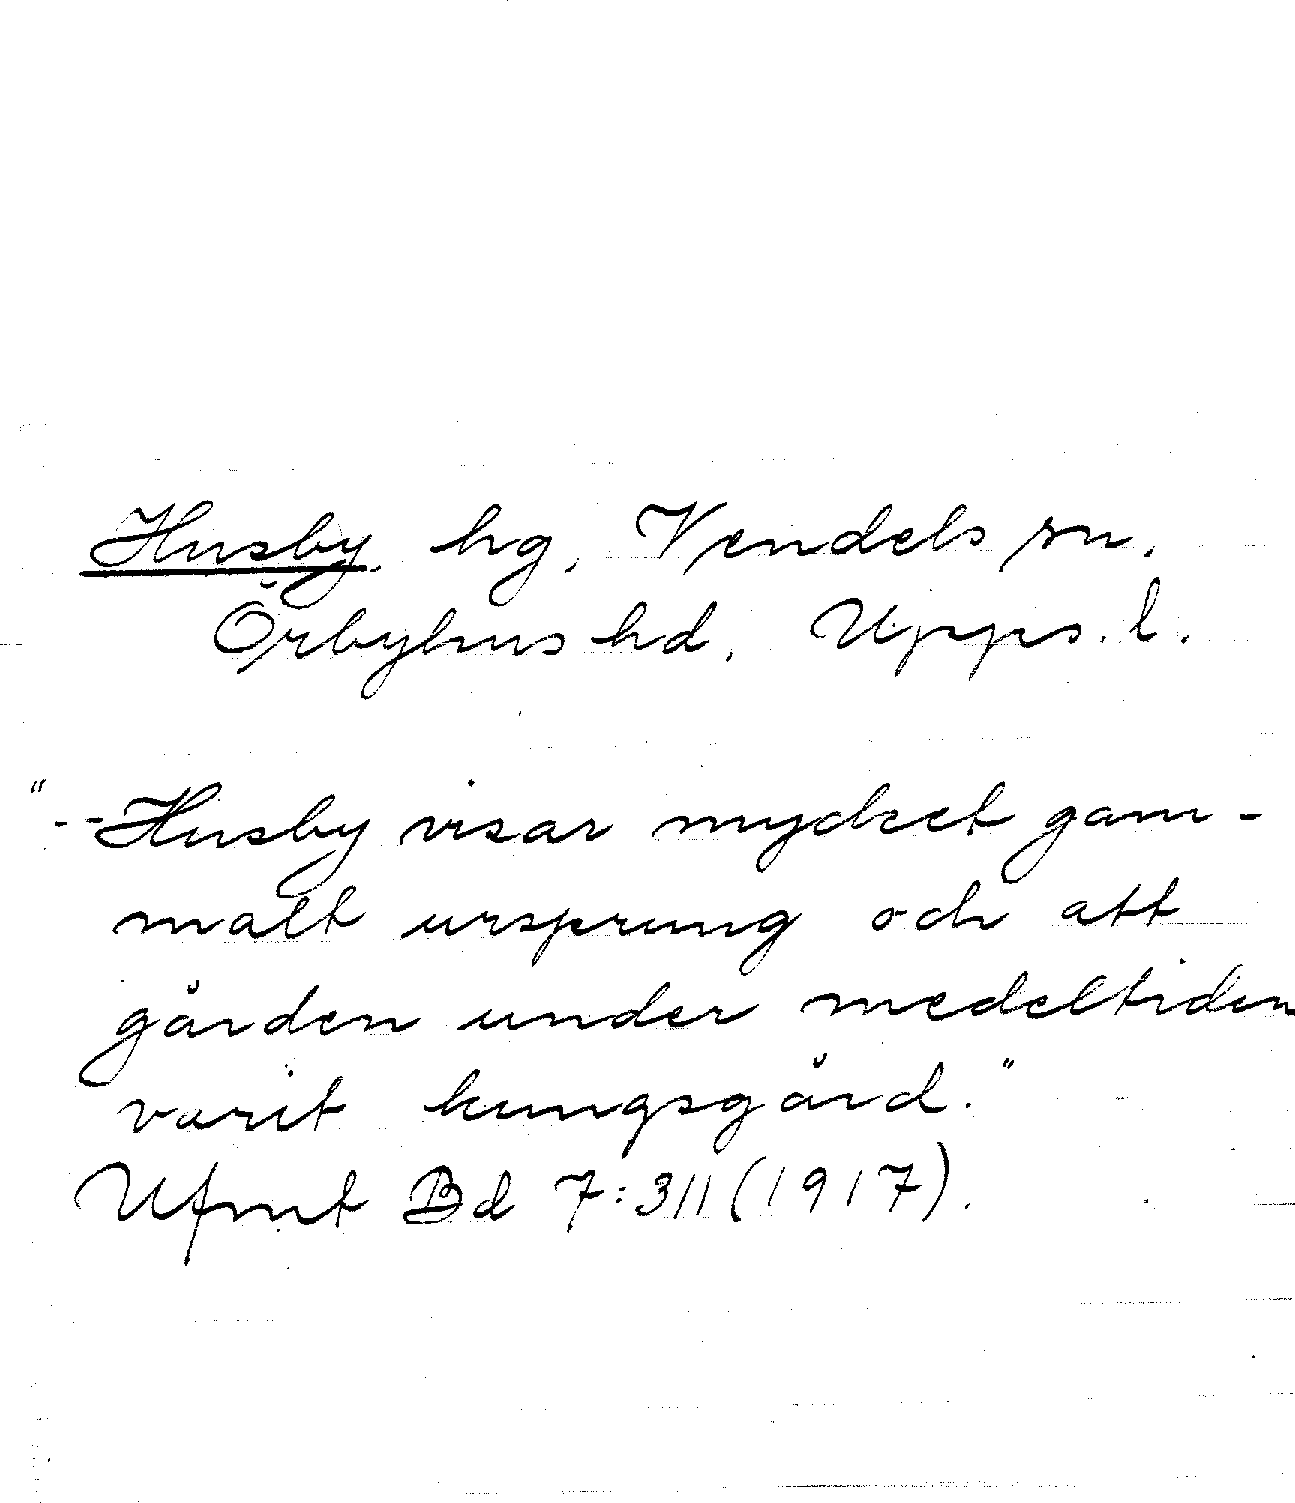 Husby, hg, Vendels sn,
Örbyhus hd, Upps. l.
"-- Husby visar mycket gam-
malt ursprung och att
gården under medeltiden
varit kungsgård."
Ufmt Bd 7:311 (1917).